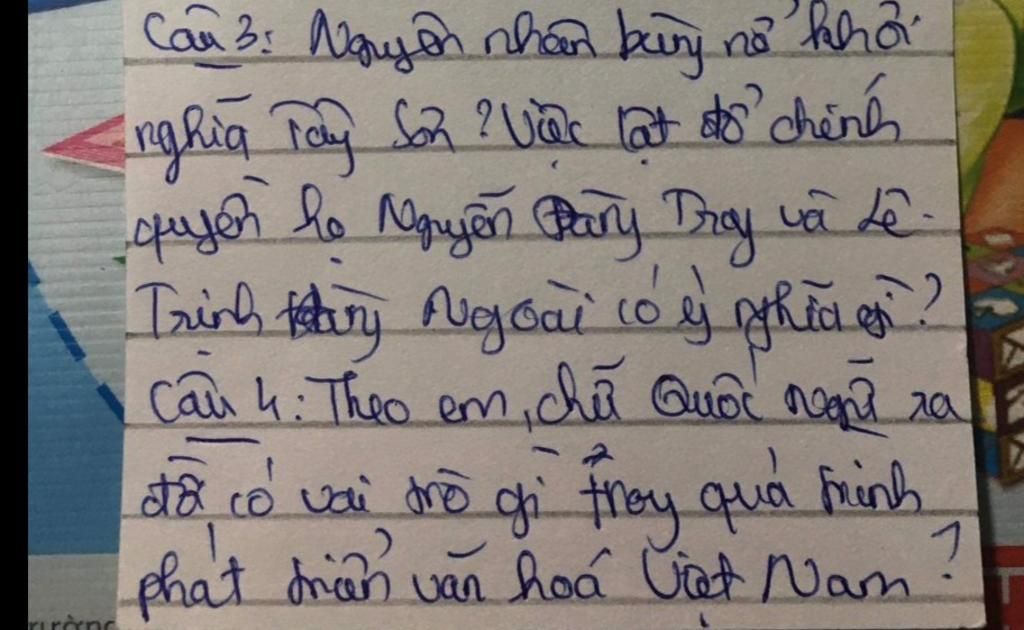 Câu 3: Nguyên nhân bùng nổ khởi
nghĩa Tây Sơn? Việc lật đổ chính
quyền họ Nguyễn Đàng Trong và Lê -
Trịnh đàng Ngoài có ý nghĩa gì?
Câu 4: Theo em, chữ Quốc ngữ ra
đời có vai trò gì trong quá trình
phát triển văn hoá Việt Nam?